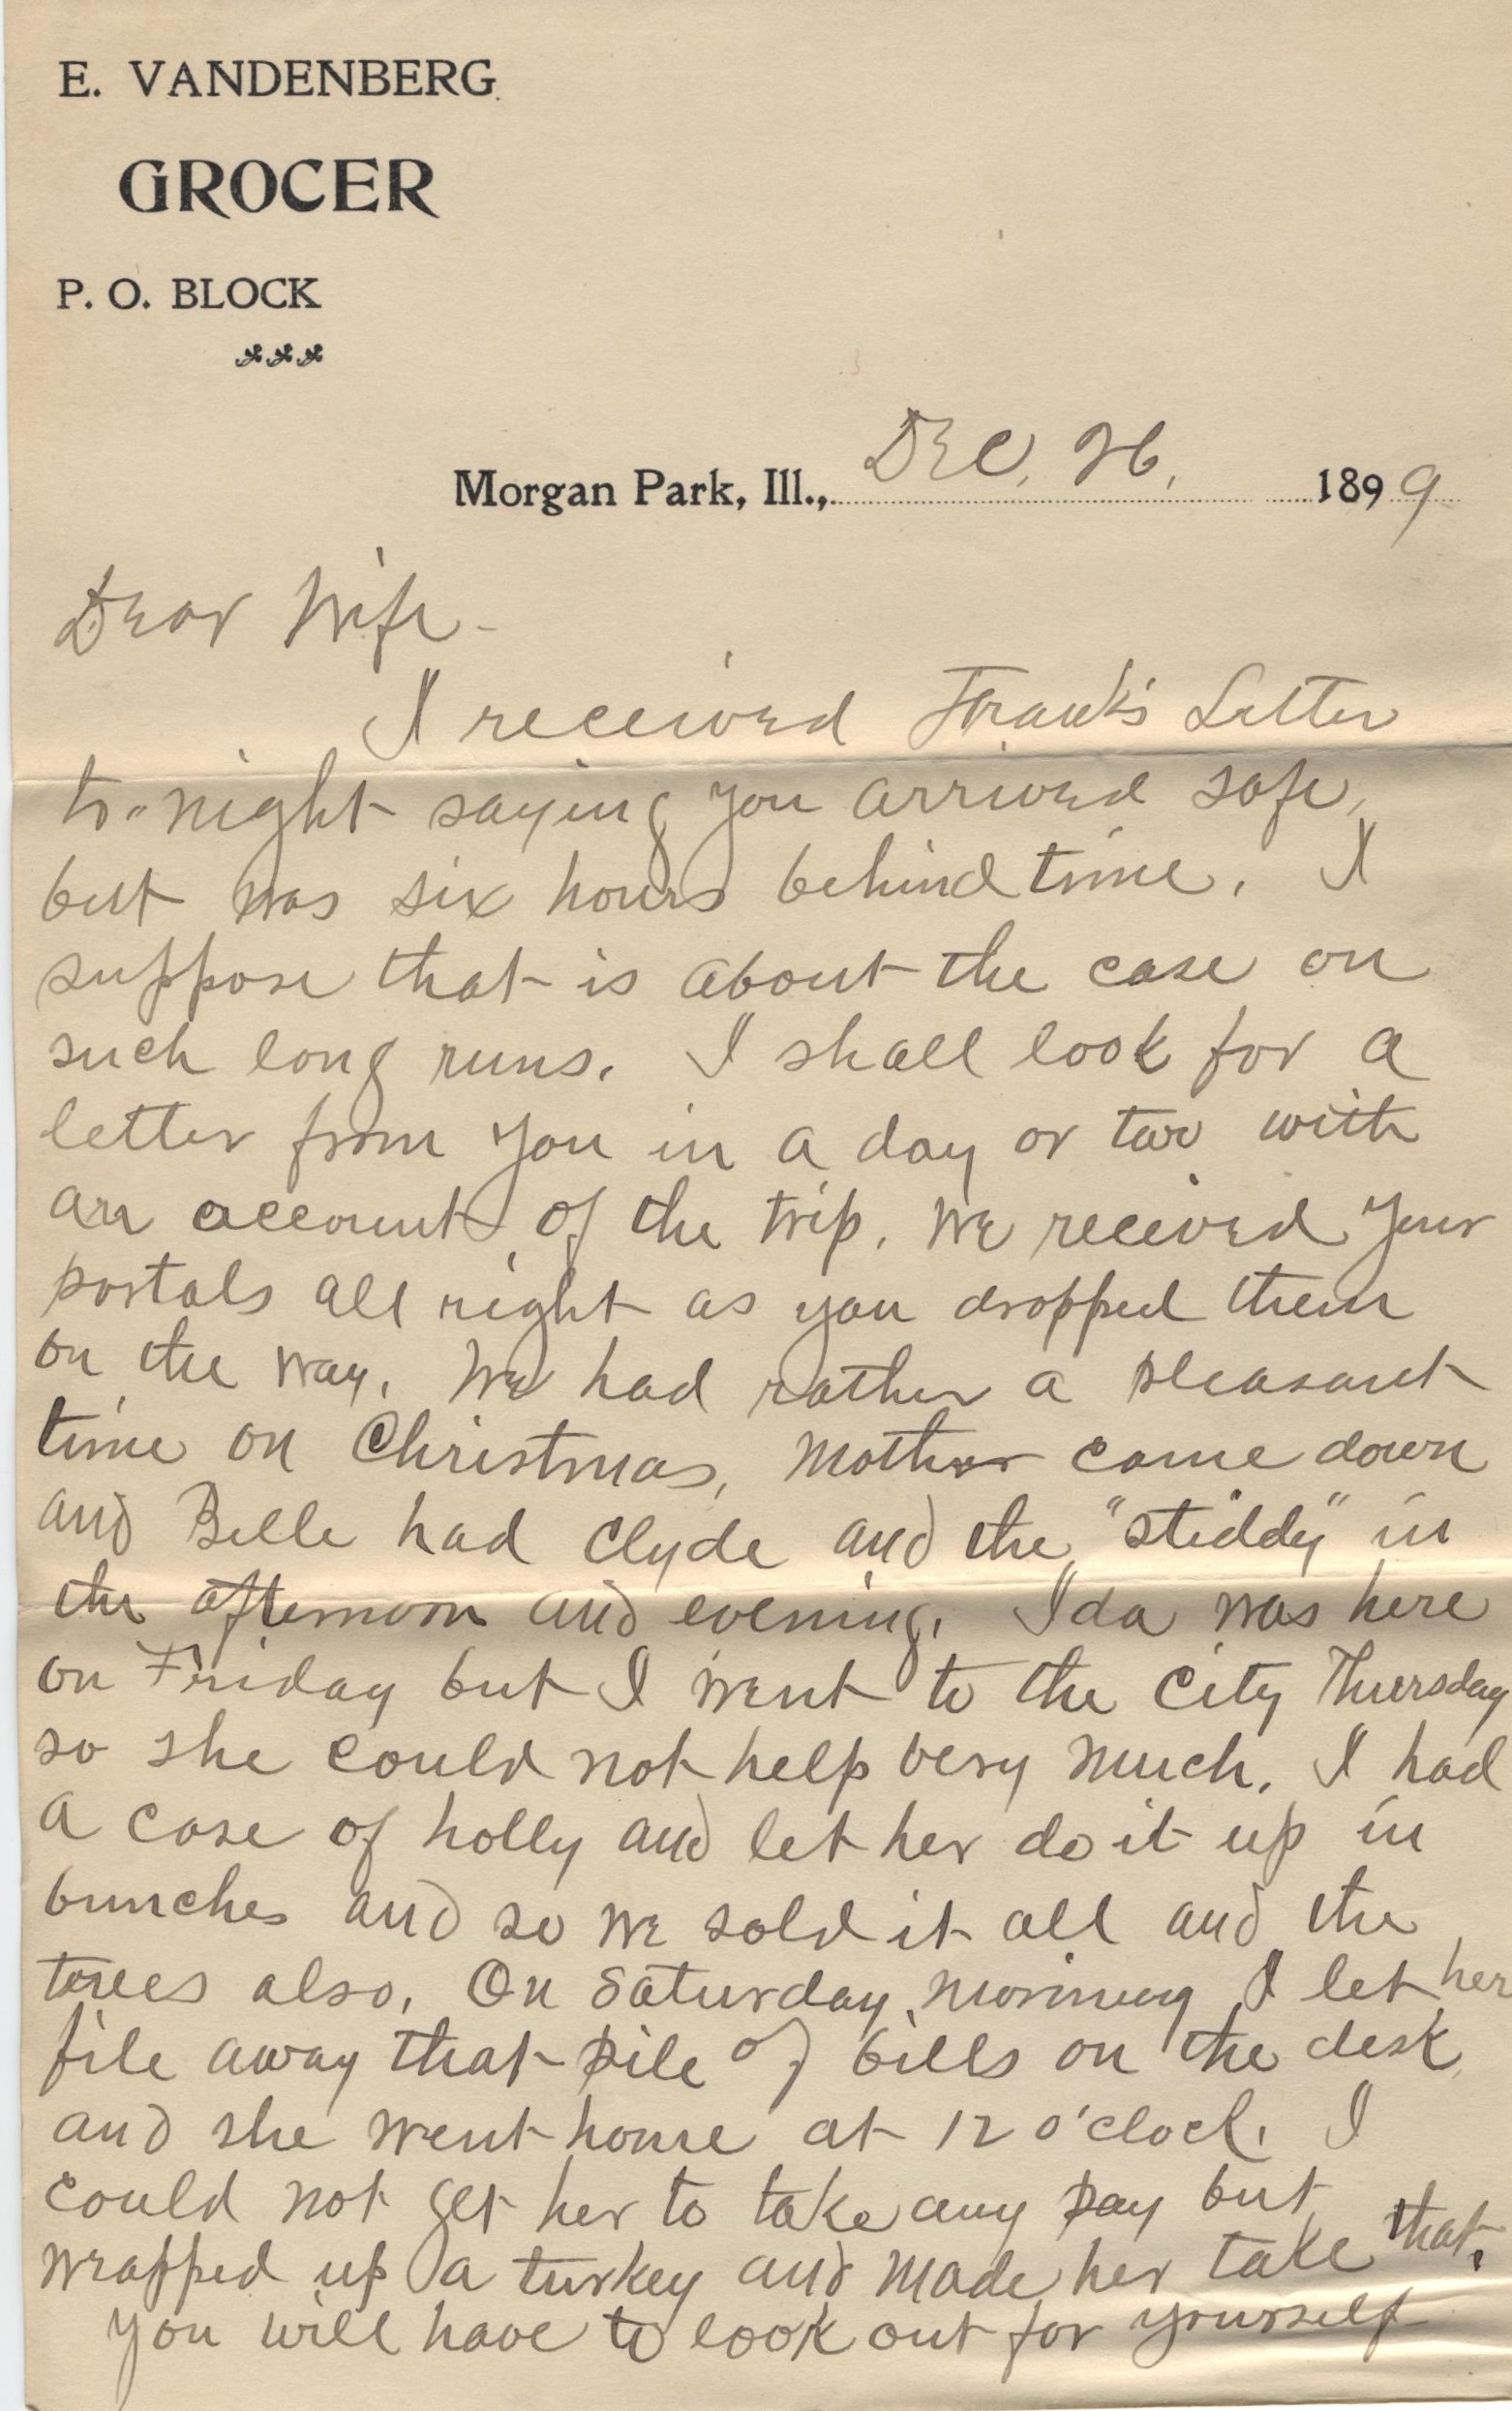 E. VANDENBERG
GROCER
P. O. BLOCK
Morgan Park, Ill., Dec. 26, 1899
Dear Wife -
I received Frank's Letter
to-night saying you arrived safe,
but was six hours behind time. I
suppose that is about the case on
such long runs. I shall look for a
letter from you in a day or two with
an account of the trip. We received your
postals all right as you dropped them
on the way. We had rather a pleasant
time on Christmas, Mother came down
and Belle had Clyde and the "stiddy" in
the afternoon and evening. Ida was here
on Friday but I went to the city Thursday
so she could not help very much. I had
a case of holly and let her do it up in
bunches and so we sold it all and the
trees also. On Saturday morning I let her
file away that pile of bills on the desk
and she went home at 12 o'clock. I
could not get her to take any pay but
wrapped up a turkey and made her take that.
You will have to look out for yourself